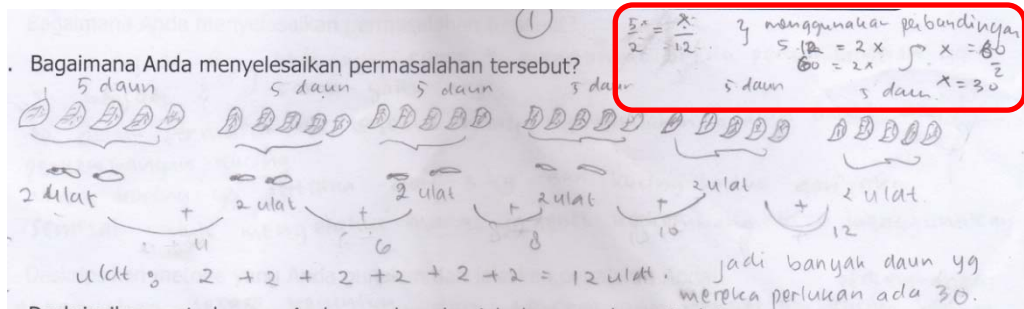 1
5/2 = x/12 } menggunakan perbandingan
5 12 = 2x
60 = 2x
x = 60/2
x = 30
. Bagaimana Anda menyelesaikan permasalahan tersebut?
5 daun 5 daun 5 daun 5 daun 5 daun 5 daun
2 ulat 2 ulat 2 ulat 2 ulat 2 ulat 2 ulat
+ + + + +
4 6 8 10 12
ulat : 2 + 2 2 + 2 + 2 + 2 12 ulat
Jadi banyak daun yg
mereka perlukan ada 30.